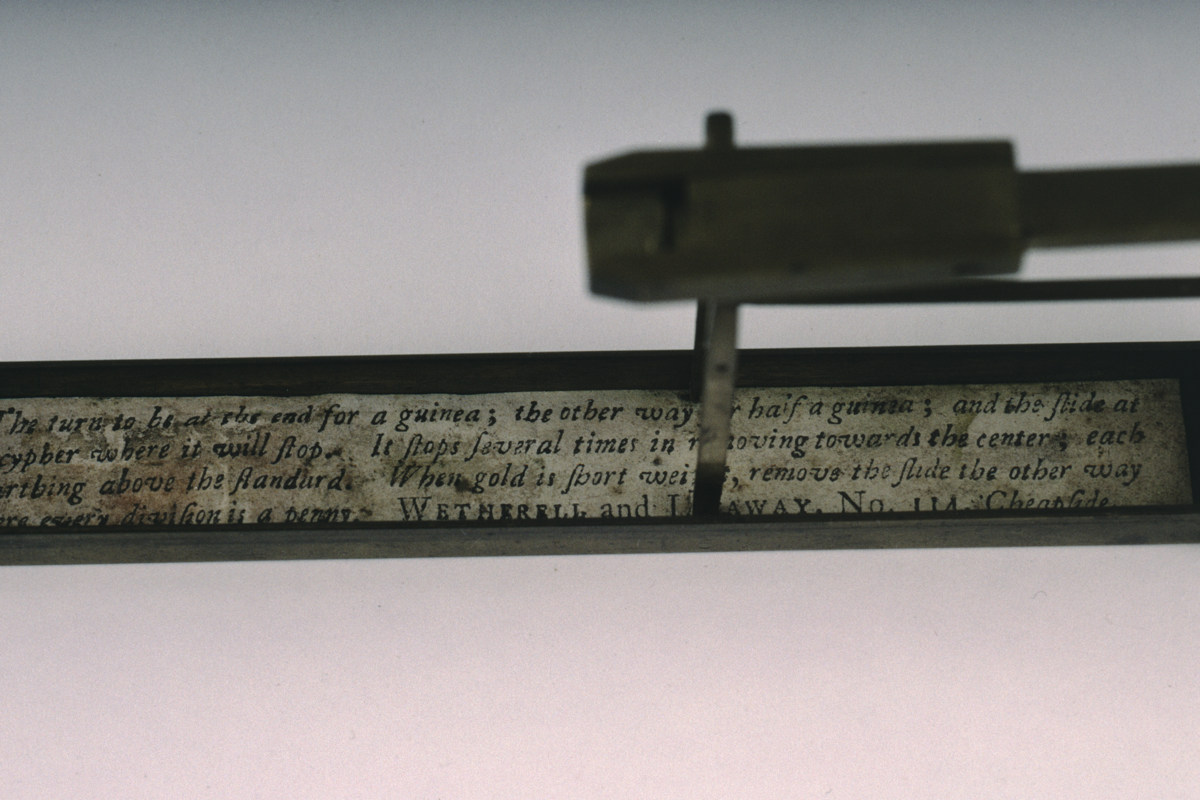 The turn to be at the end for a guinea; the other way for ha'f a guinea; and the ſlide at
cypher where it will ſtop. It ſtops ſeveral times in removing towards the center; each
arthing above the ſtandurd. When gold is ſhort weight, remove the ſlide the other way
ore every diviſion is a penny. WETHERELL and No. 114, Cheapſide.